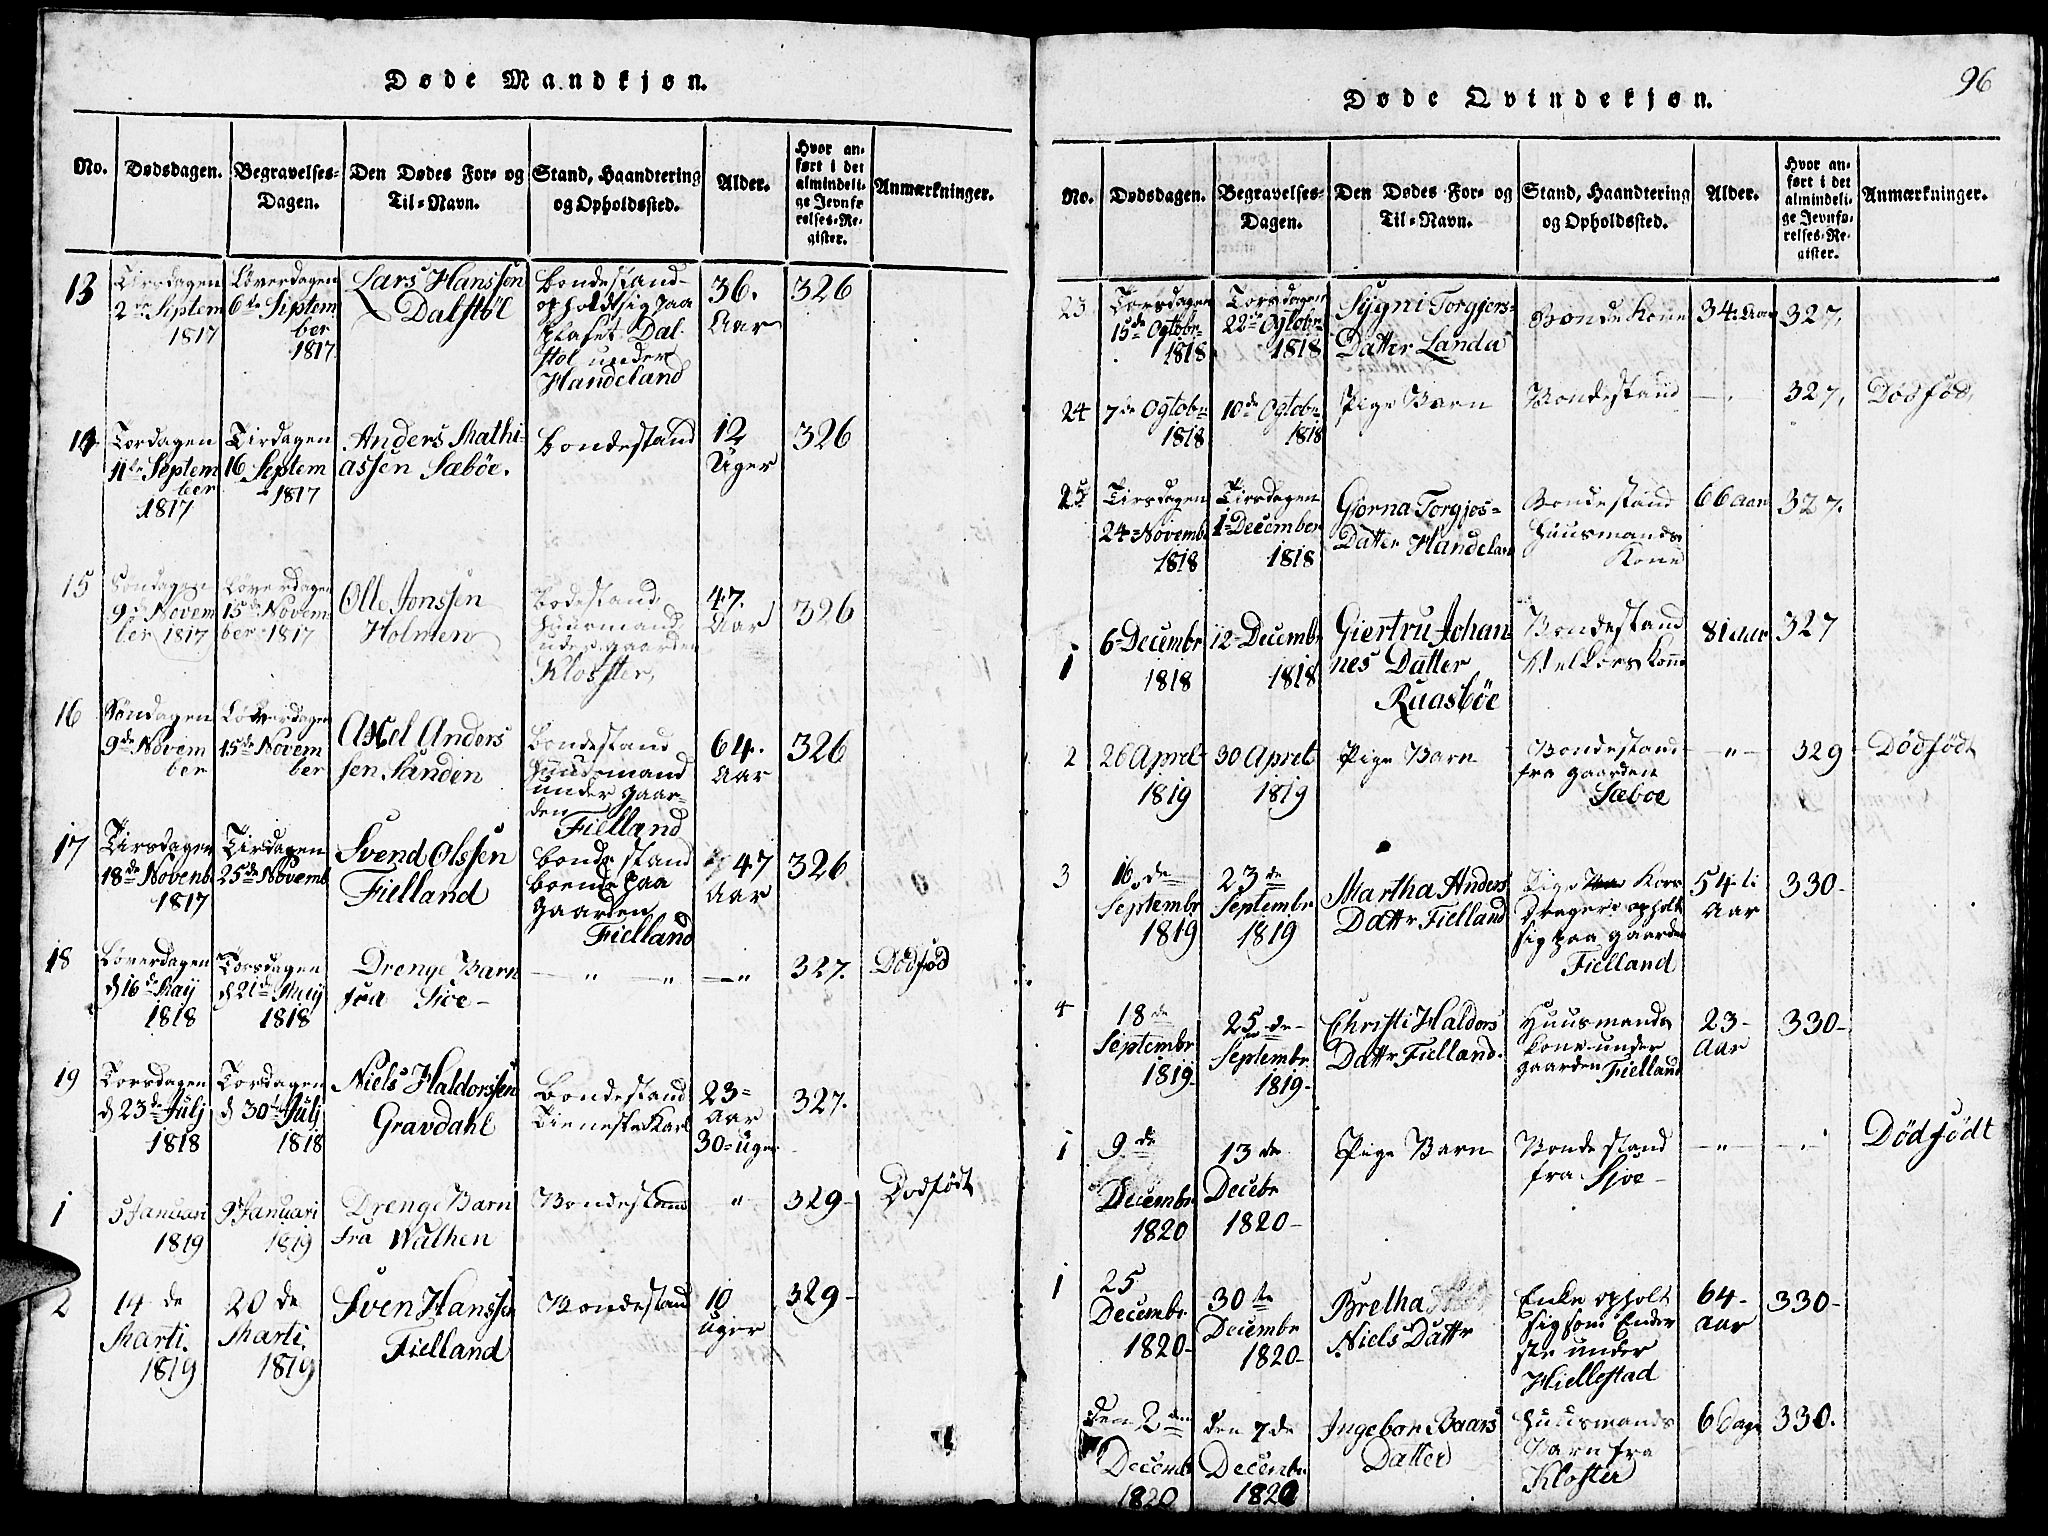 Døde Mandkjøn.
No.
Dødsdagen.
Begravelses-
Dagen.
Den Dødes For- og
Til-Navn.
Stand, Haandtering
og Opholdssted.
Alder.
Hvor an-
ført i det
almindeli-
ge Jevnfø-
relses-Re-
gister.
Anmærkninger.
13
Tirsdagen
2de Septem
1817
Løverdagen
6te Septem
ber
1817.
Lars Hanssen
Dalstøl
Bondestand
opholdt sig paa
plaset Dal-
støl under
Handeland
36.
Aar
326
14
Tordagen
11te Septem
ber
1817
Tirdagen
16 Septem
1817
Anders Mathi-
assen Sæbøe.
Bondestand
12
Uger
326
15
Søndagen
9de Novem
ber 1817
Løverdagen
15de Novem
ber 1817
Olle Jonssen
Holmen
Bodestand
Huusmand
under gaarden
Klosster,
47.
Aar
326
16
Søndagen
9de Novem
ber
Løverdagen
15de Novem
ber
Axel Anders
sen Sanden
Bondestand
Huusmand
under gaar-
den
Fielland
64.
Aar
326
17
Tirsdagen
18de Novenb
1817
Tirdagen
25de Novemb
Svend Olssen
Fielland
Bonde stand
boende paa
gaarden
Fielland
47
Aar
326
18
Løverdagen
d 16de Maij
1818
Torsdagen
d 21de Maij
1818
Drenge Barn
fra Sive-
— „ — „
— „
327.
Dødfød
19
Torsdagen
d 23de Julj
1818
Torsdagen
d 30te Julj
1818
Niels Haldorssen
Gravdahl
Bondestand
Tieneste Karl
23-
Aar
30-Uger
327.
1
5 Januari
1819
9 Januari
1819
Drenge Barn
fra Wathen
Bondestand
„
329-
Dodfødt
2
14 de
Marti.
1819
20 de
Marti.
1819
Sven Hanssen
Fielland
Bondestand
10
Uger
329-
96
Døde Qvindekjøn.
No.
Dødsdagen.
Begravelses-
Dagen.
Den Dødes For- og
Til-Navn.
Stand, Haandtering
og Opholdssted.
Alder.
Hvor an-
ført i det
almindeli-
ge Jevnfø-
relses-Re-
gister.
Anmærkninger.
23
Torsdagen
15de Ogtobr
1818
Torsdagen
22de Ogtobr
1818
Sygni Torgjers-
Datter Landa
Bonde Kone
34. Aar
327,
24
7de Ogtobr
1818
10de Ogtobr
1818
Pige Barn
Bondestand
—
327,
Dødfød,
25
Tirsdagen
24-Novemb
1818
Tirsdagen
1-December
1818
Gjorna Torgjes-
Datter Handelan
Bondestand
Huusmands
Kone
66 Aar
327.
1
6-Decembr
1818
12-Decembr
1818
Giertru Johan
nes Datter
Ruasbøe
Bondestand
Kone
81 Aar
327
2
26 Aprel
1819
30 Apreb
1819
Pige Barn
Bondestand
fra gaarden
Sæboe
— „ —
329
Dødfødt
3
16.de
Septembr
1819
23 de
Septembr
1819
Martha Anders
Dattr Fielland
Pige
opholt
sig paa gaarden
Fielland
54-
Aar
330-
4
18 de
Septembr
1819-
25 de-
Septembr
1819-
Christi Haldors
Dattr Fielland.
Huusmands
kone under
gaarden Fielland
23-
Aar
330-
1
9 de
Decembr
1820
13 de
Decebr
1820-
Pige Barn
Bonde stand
fra Sjve-
— „ —
— „
Dødfødt
1
25
Decembr
1820-
30 te
Decembr
1820-
Bretha
Niels Dattr
Enke opholt
sig som Inder
ste under
Hiellestad
64-
Aar
330-
den 2 den
Decemb
1820
den 7 de
Decembr
1820
Ingebor Baars
Datter
Huusmands
Barn fra
Kloster
6 Dage
330.